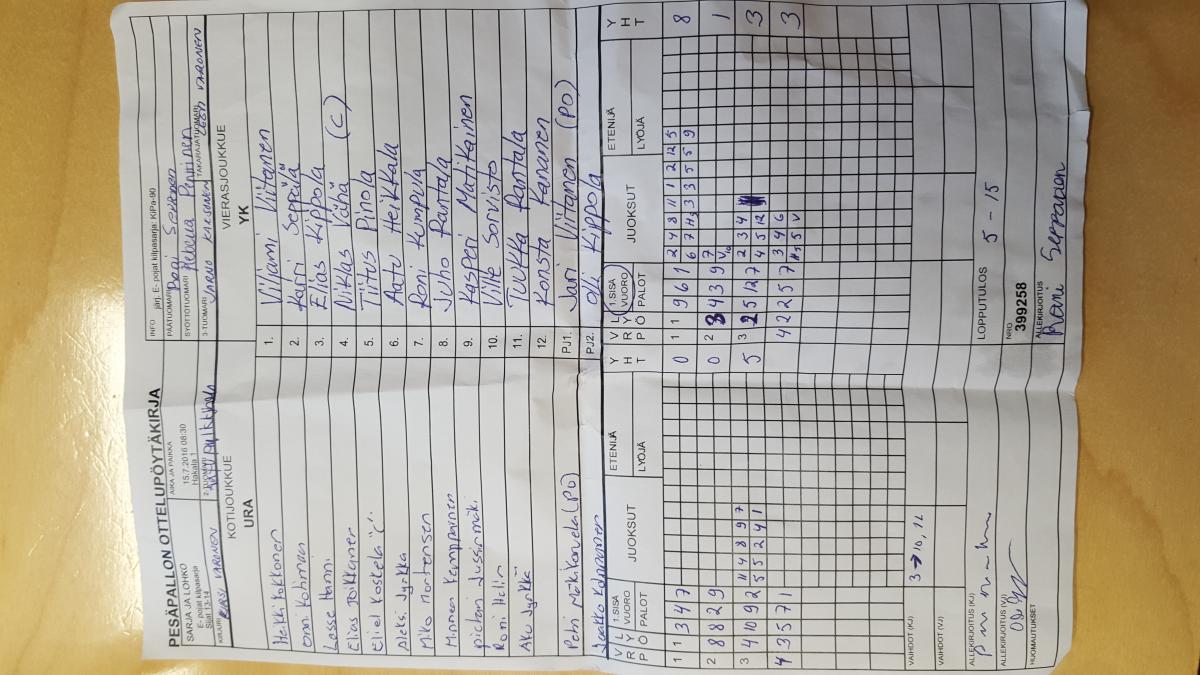 PESÄPALLON OTTELUPÖYTÄKIRJA
SARJA JA LOHKO
E- pojat kilpasarja
Sijat 13-14
AIKA JA PAIKKA
15.7.2016 08:30
Hakala 1
INFO järj. E- pojat kilpasarja: KiPa-90
PÄÄTUOMARI
SYÖTTÖTUOMARI
3-TUOMARI
TAKARAJATUOMARI
KIRJURI KIRSI VARONEN
2-TUOMARI
KOTIJOUKKUE
URA
VIERASJOUKKUE
YK
Heikki Kokkonen
1. Viljami Viitanen
Onni Kotimar
2. Karri Seppälä
Lasse Hanni
3. Elias Kippola
Elias Poikkaner
4. Niklas Vähä (C)
Eliel Koskela "C"
5. Tiitus Pinola
Aleksi Jyrkkä
6. Aatu Heikkala
Miko Mortensen
7. Roni Kumpula
Minnea Kamppainen
8. Juho Rantala
9. Kasperi Matikainen
Romi Helin
10. Ville Sorvisto
Aku Jyrkkä
11. Tuukka Rantala
12. Konsta Kananen
(PO)
PJ1. Jari Viitanen (PO)
Jaakko
PJ2. Olli Kippola
V R P
L Y Ö
1.SISÄ
VUORO
PALOT
JUOKSUT
ETENIJÄ
LYÖJÄ
Y H T
V R P
L Y Ö
1.SISÄ
VUORO
PALOT
JUOKSUT
ETENIJÄ
LYÖJÄ
Y H T
1 1 3 4 7
0
1 1 9 6 1
2 4 8 11 1 2 12 5
6 7 H2 3 3 5 5 9
8
2 8 8 2 9
0
2 3 4 3 9
7
1
3 4 10 9 2
11 4 8 9 7
5 5 2 4 1
5
3 2 5 12 7
2 3 4
4 5 12
3
4 3 5 7 1
4 2 2 5 7
3 4 6
H3 5 V
3
3 → 10, 12
VAIHDOT (KJ)
VAIHDOT (VJ)
ALLEKIRJOITUS (KJ)
LOPPUTULOS 5 - 15
ALLEKIRJOITUS (VJ)
NRO
399258
HUOMAUTUKSET
ALLEKIRJOITUS